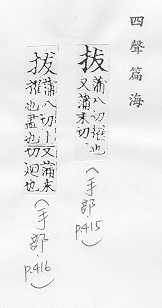 四聲篇海
拔 蒲八切擢也
又蒲末切
(手部 p.415)
拔 蒲八切
擢也盡也
又蒲末
切迴也
(手部. p.416)